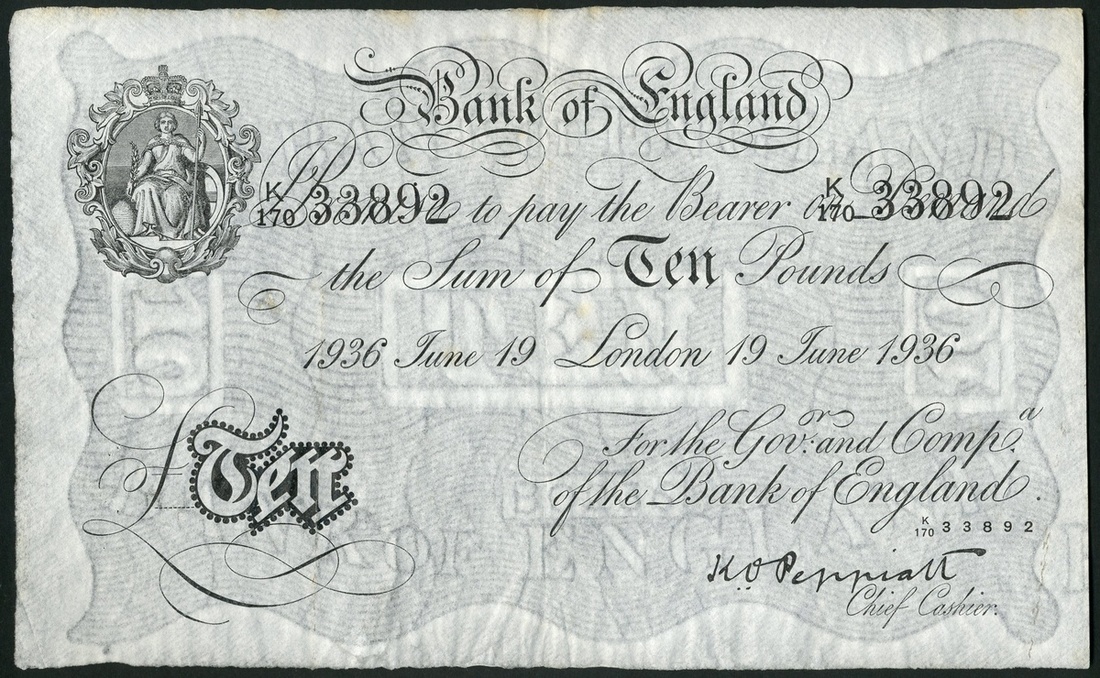 Bank of England
K/170 33892 to pay the Bearer on Demand K/170 33892
the Sum of Ten Pounds
1936 June 19 London 19 June 1936
£Ten
For the Govr. and Compa.
of the Bank of England.
K/170 33892
K O Peppiatt
Chief Cashier.